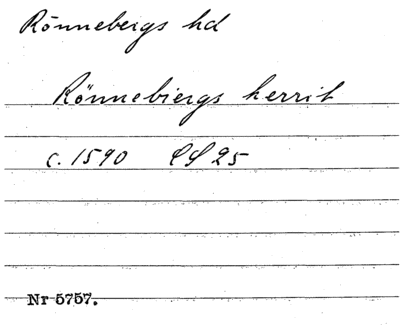 Rönnebergs hd
Rönnebiergs herrit
c. 1590 CS 25
Nr 5757.